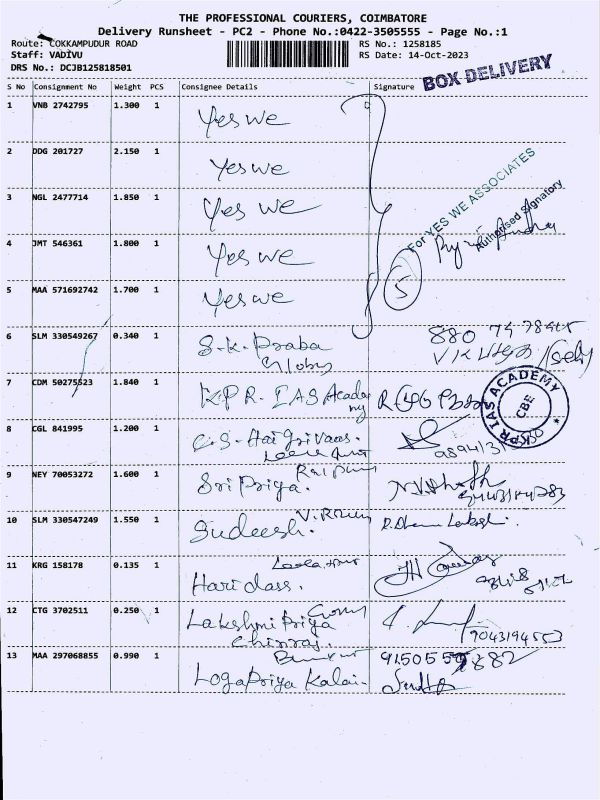 THE PROFESSIONAL COURIERS, COIMBATORE
Delivery Runsheet - PC2 - Phone No.:0422-3505555 - Page No.:1
Route: COKKAMPUDUR ROAD
RS No.: 1258185
Staff: VADIVU
RS Date: 14-Oct-2023
DRS No.: DCJB125818501
BOX DELIVERY
S No Consignment No Weight PCS Consignee Details Signature
1 VNB 2742795 1.300 1 Yes we
2 DDG 201727 2.150 1 Yes we
3 NGL 2477714 1.850 1 Yes we
For YES WE ASSOCIATES
Authorised Signatory
4 JMT 546361 1.800 1 Yes we
5 MAA 571692742 1.700 1 Yes we
5
6 SLM 330549267 0.340 1 S.K. Praba
7 CDM 50275523 1.840 1 K.P.R. IAS Academy
KPR IAS ACADEMY
CBE
8 CGL 841995 1.200 1 C.S. Hai Grivaas.
9 NEY 70053272 1.600 1 Sri Priya.
10 SLM 330547249 1.550 1 Sudeesh.
11 KRG 158178 0.135 1
Hari dass.
12 CTG 3702511 0.250 1 Lakshmi Priya
Chinraj.
9043194553
13 MAA 297068855 0.990 1
Logapriya Kalai-